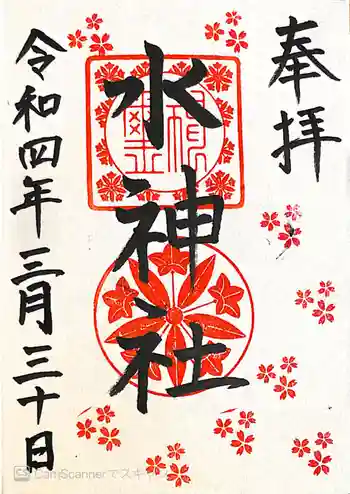 奉拝
水神社
令和四年三月三十日
CamScannerでスキャン